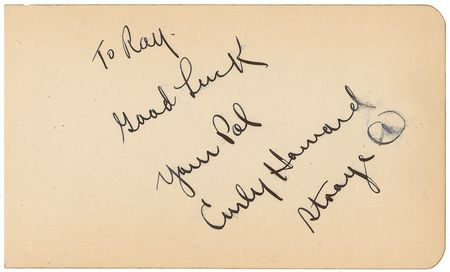 To Ray.
Good Luck
Your Pal
Curly Howard
Stooge